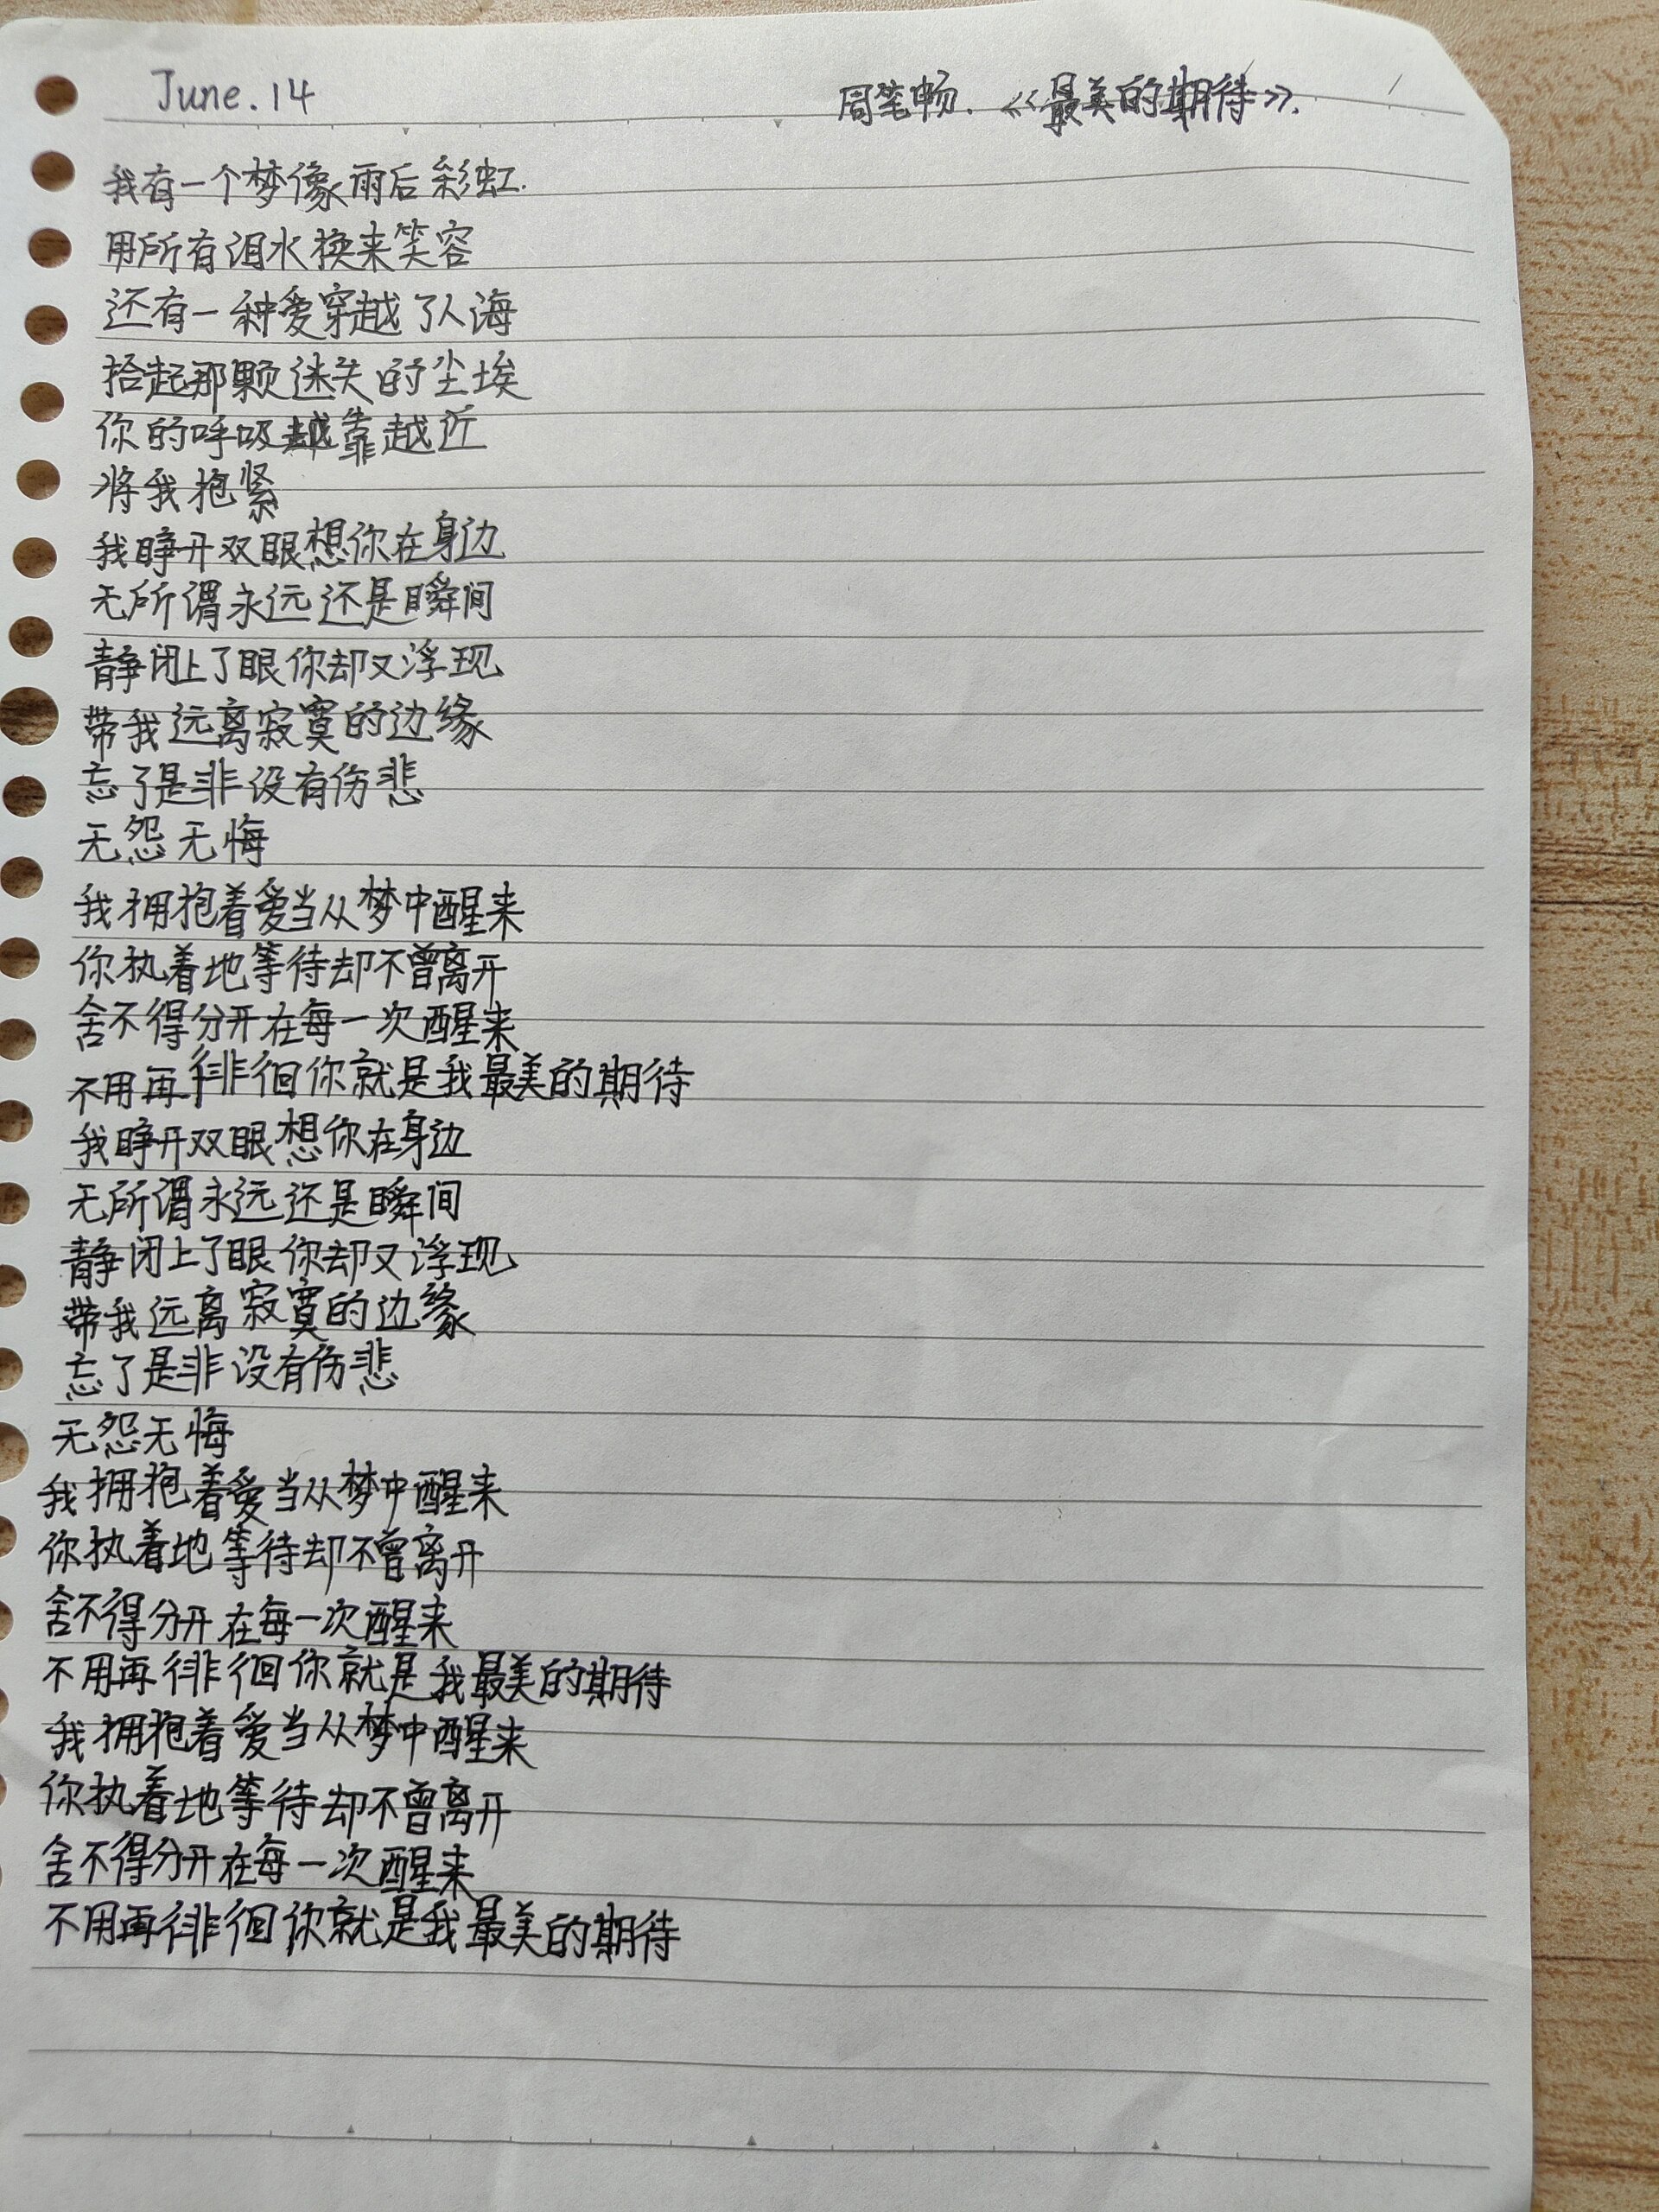 June.14
周笔畅.《最美的期待》.
我有一个梦像雨后彩虹.
用所有泪水换来笑容
还有一种爱穿越了人海
拾起那颗迷失的尘埃
你的呼吸越靠越近
将我抱紧
我睁开双眼想你在身边
无所谓永远还是瞬间
静闭上了眼你却又浮现
带我远离寂寞的边缘
忘了是非没有伤悲
无怨无悔
我拥抱着爱当从梦中醒来
你执着地等待却不曾离开
舍不得分开在每一次醒来
不用再徘徊你就是我最美的期待
我睁开双眼想你在身边
无所谓永远还是瞬间
静闭上了眼你却又浮现
带我远离寂寞的边缘
忘了是非没有伤悲
无怨无悔
我拥抱着爱当从梦中醒来
你执着地等待却不曾离开
舍不得分开在每一次醒来
不用再徘徊你就是我最美的期待
我拥抱着爱当从梦中醒来
你执着地等待却不曾离开
舍不得分开在每一次醒来
不用再徘徊你就是我最美的期待